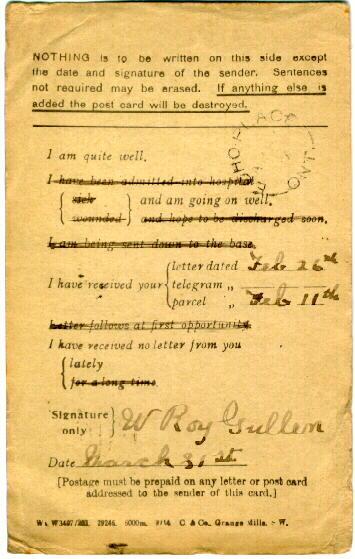 NOTHING is to be written on this side except
the date and signature of the sender. Sentences
not required may be erased. If anything else is
added the post card will be destroyed.
I am quite well.
I have been admitted into hospital
sick
wounded
and am going on well.
and hope to be discharged soon.
I am being sent down to the base.
I have received your
letter dated Feb 26th
telegram ,,
parcel ,, Feb 11th
Letter follows at first opportunity.
I have received no letter from you
lately
for a long time.
Signature
only
W Roy Gullen
Date March 31st
[Postage must be prepaid on any letter or post card
addressed to the sender of this card.]
29246. 6000m. C & Co., Grange Mills, W.
ONT